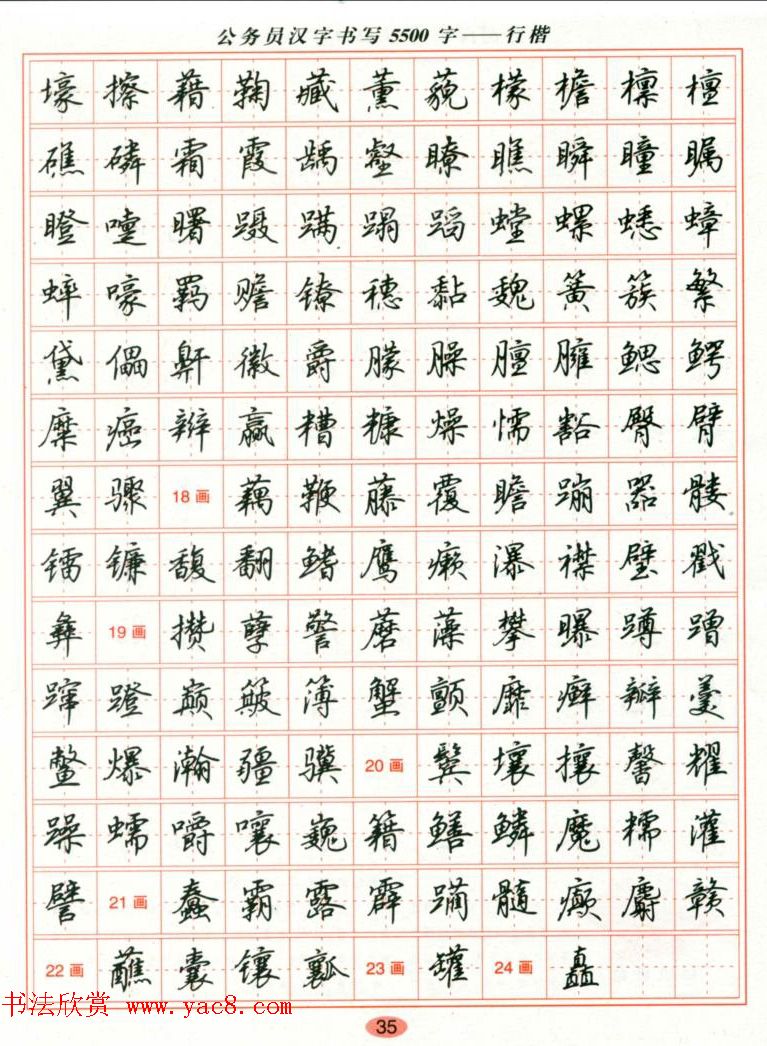 公务员汉字书写 5500 字——行楷
壕 擦 藉 鞠 藏 薰 藐 檬 檐 檩 檀
礁 磷 霜 霞 龋 壑 瞭 瞧 瞬 瞳 瞩
瞪 嚏 曙 蹑 蹒 蹋 蹈 螳 螺 蟋 蟑
蟀 嚎 羁 赡 镣 穗 黏 魏 簧 簇 繁
黛 儡 鼾 徽 爵 朦 臊 膻 臃 鳃 鳄
糜 癌 辫 赢 糟 糠 燥 懦 豁 臀 臂
翼 骤 18 画 藕 鞭 藤 覆 瞻 蹦 嚣 髅
镭 镰 馥 翻 鳍 鹰 癞 瀑 襟 璧 戳
彝 19 画 攒 孽 警 蘑 藻 攀 曝 蹲 蹭
蹿 蹬 巅 簸 簿 蟹 颤 靡 癣 瓣 羹
鳖 爆 瀚 疆 骥 20 画 鬓 壤 攘 馨 耀
躁 蠕 嚼 嚷 巍 籍 鳝 鳞 魔 糯 灌
譬 21 画 蠢 霸 露 霹 躏 髓 癫 麝 赣
22 画 蘸 囊 镶 瓤 23 画 罐 24 画 矗
书法欣赏 www.yac8.com
35